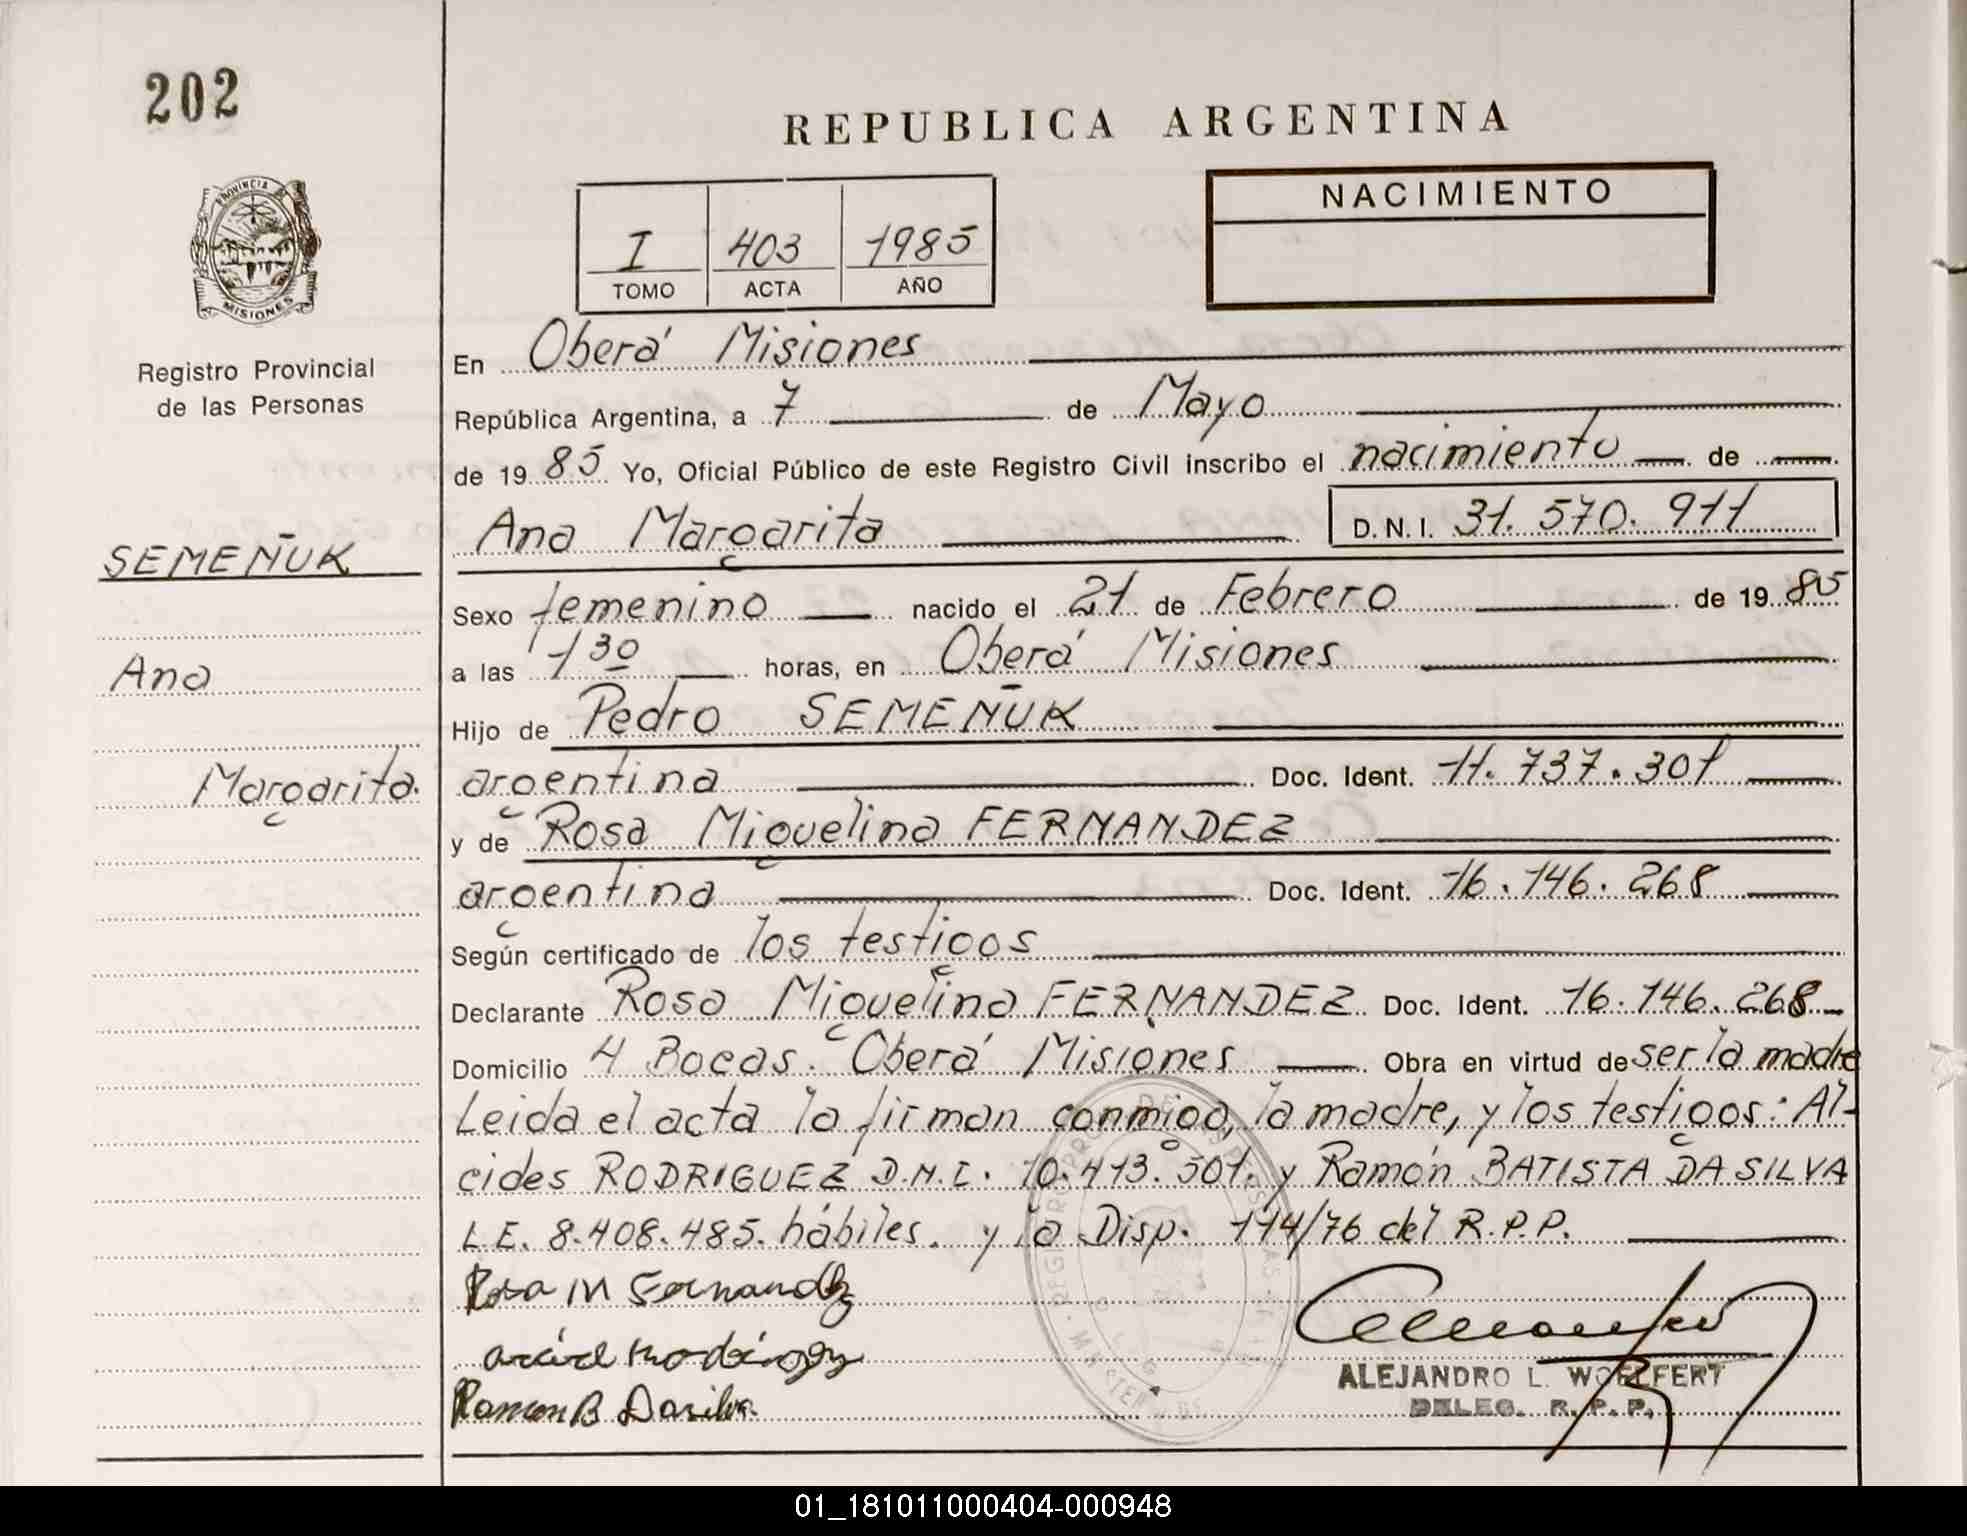 202
REPUBLICA ARGENTINA
PROVINCIA
MISIONES
Registro Provincial
de las Personas
I 403 1985
TOMO ACTA AÑO
NACIMIENTO
En Oberá Misiones
República Argentina, a 7 de Mayo
de 1985 Yo, Oficial Público de este Registro Civil inscribo el nacimiento de
Ana Margarita D.N.I. 31.570.911
SEMEÑUK
Ana
Margarita.
Sexo femenino nacido el 21 de Febrero de 1985
a las 1 30 horas, en Oberá Misiones
Hijo de Pedro SEMEÑUK
argentina Doc. Ident. 11.737.301
y de Rosa Miguelina FERNANDEZ
argentina Doc. Ident. 16.146.268
Según certificado de los testigos
Declarante Rosa Miguelina FERNANDEZ Doc. Ident. 16.146.268
Domicilio 4 Bocas. Oberá Misiones Obra en virtud de ser la madre
Leida el acta la firman conmigo, la madre, y los testigos: Al-
cides RODRIGUEZ D.N.I. 10.413.501. y Ramón BATISTA DA SILVA
L.E. 8.408.485. hábiles. y la Disp. 114/76 del R.P.P.
Rosa M Fernandez
Ramon B Dasilva
ALEJANDRO L. WOELFERT
DELEG. R.P.P.
01_181011000404-000948